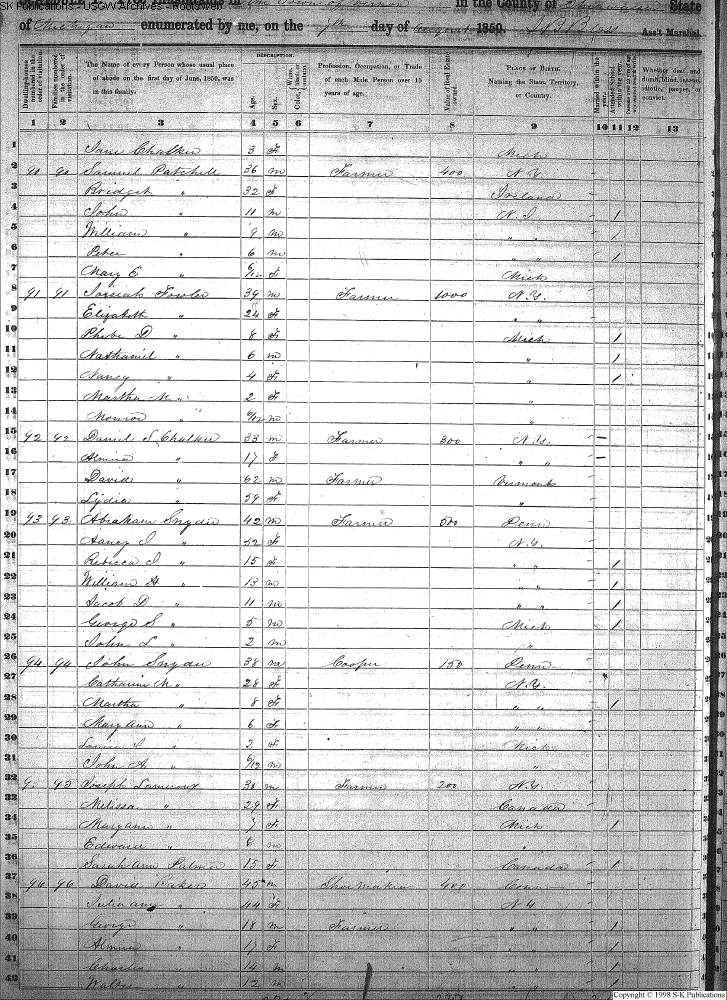 SK Publications - USGW Archives - RootsWeb
in the Town of Vernon in the County of State
of Michigan enumerated by me, on the 7th day of August, 1850. Ass't Marshal.
Dwelling-houses numbered in the order of visitation.
Families numbered in the order of visitation.
The Name of every Person whose usual place of abode on the first day of June, 1850, was in this family.
DESCRIPTION.
Age.
Sex.
White, black, or mulatto.
Color,
Profession, Occupation, or Trade of each Male Person over 15 years of age.
Value of Real Estate owned.
PLACE OF BIRTH.
Naming the State, Territory, or Country.
Married within the year.
Attended School within the year.
Whether deaf and dumb, blind, insane, idiotic, pauper, or convict.
1 2 3 4 5 6 7 8 9 10 11 12 13
1 Jane Chalker 3 F Mich
2 90 90 Samuel Patchell 36 m Farmer 400 N.Y.
3 Bridget " 32 F Ireland
4 John " 11 m N.J. 1
5 William " 9 m " " 1
6 Peter " 6 m " " 1
7 Mary E " 6/12 F Mich
8 91 91 Josiah Fowler 39 m Farmer 1000 N.Y.
9 Elizabeth " 24 F " "
10 Phebe D " 8 F Mich 1
11 Nathaniel " 6 m " 1
12 Nancy " 4 F " 1
13 Martha M " 2 F "
14 Monroe " 6/12 m "
15 92 92 Daniel S Chalker 33 m Farmer 300 N.Y.
16 Almira " 17 F " "
17 David " 62 m Farmer Vermont
18 Lydia " 59 F "
19 93 93 Abraham Snyder 42 m Farmer 500 Penn
20 Nancy J " F N.Y.
21 Rebecca J " 15 F " " 1
22 William H " 13 m " " 1
23 Jacob D " 11 m " " 1
24 George S " 5 m Mich 1
25 John L " 2 m "
26 94 94 John Snyder 38 m Cooper 150 Penn
27 Catharine M " 28 F N.Y.
28 Martha " 8 F " " 1
29 Mary Ann " 6 F " "
30 " 2 F Mich
31 John A. " 6/12 m "
32 95 Joseph Lameroux 30 m Farmer 200 N.Y.
33 Melissa " 29 F Canada
34 Mary ann " 7 F Mich 1
35 Edward " 6 m "
36 Sarah Ann Palmer 15 F Canada 1
37 96 96 David Baker 45 m Shoe Maker 400 Conn
38 Julia ann " 44 F N.Y
39 George " 18 m Farmer " " 1
40 Almira " 17 F " " 1
41 Charles " 14 m " " 1
42 " 12 m " " 1
Copyright © 1998 S-K Publications